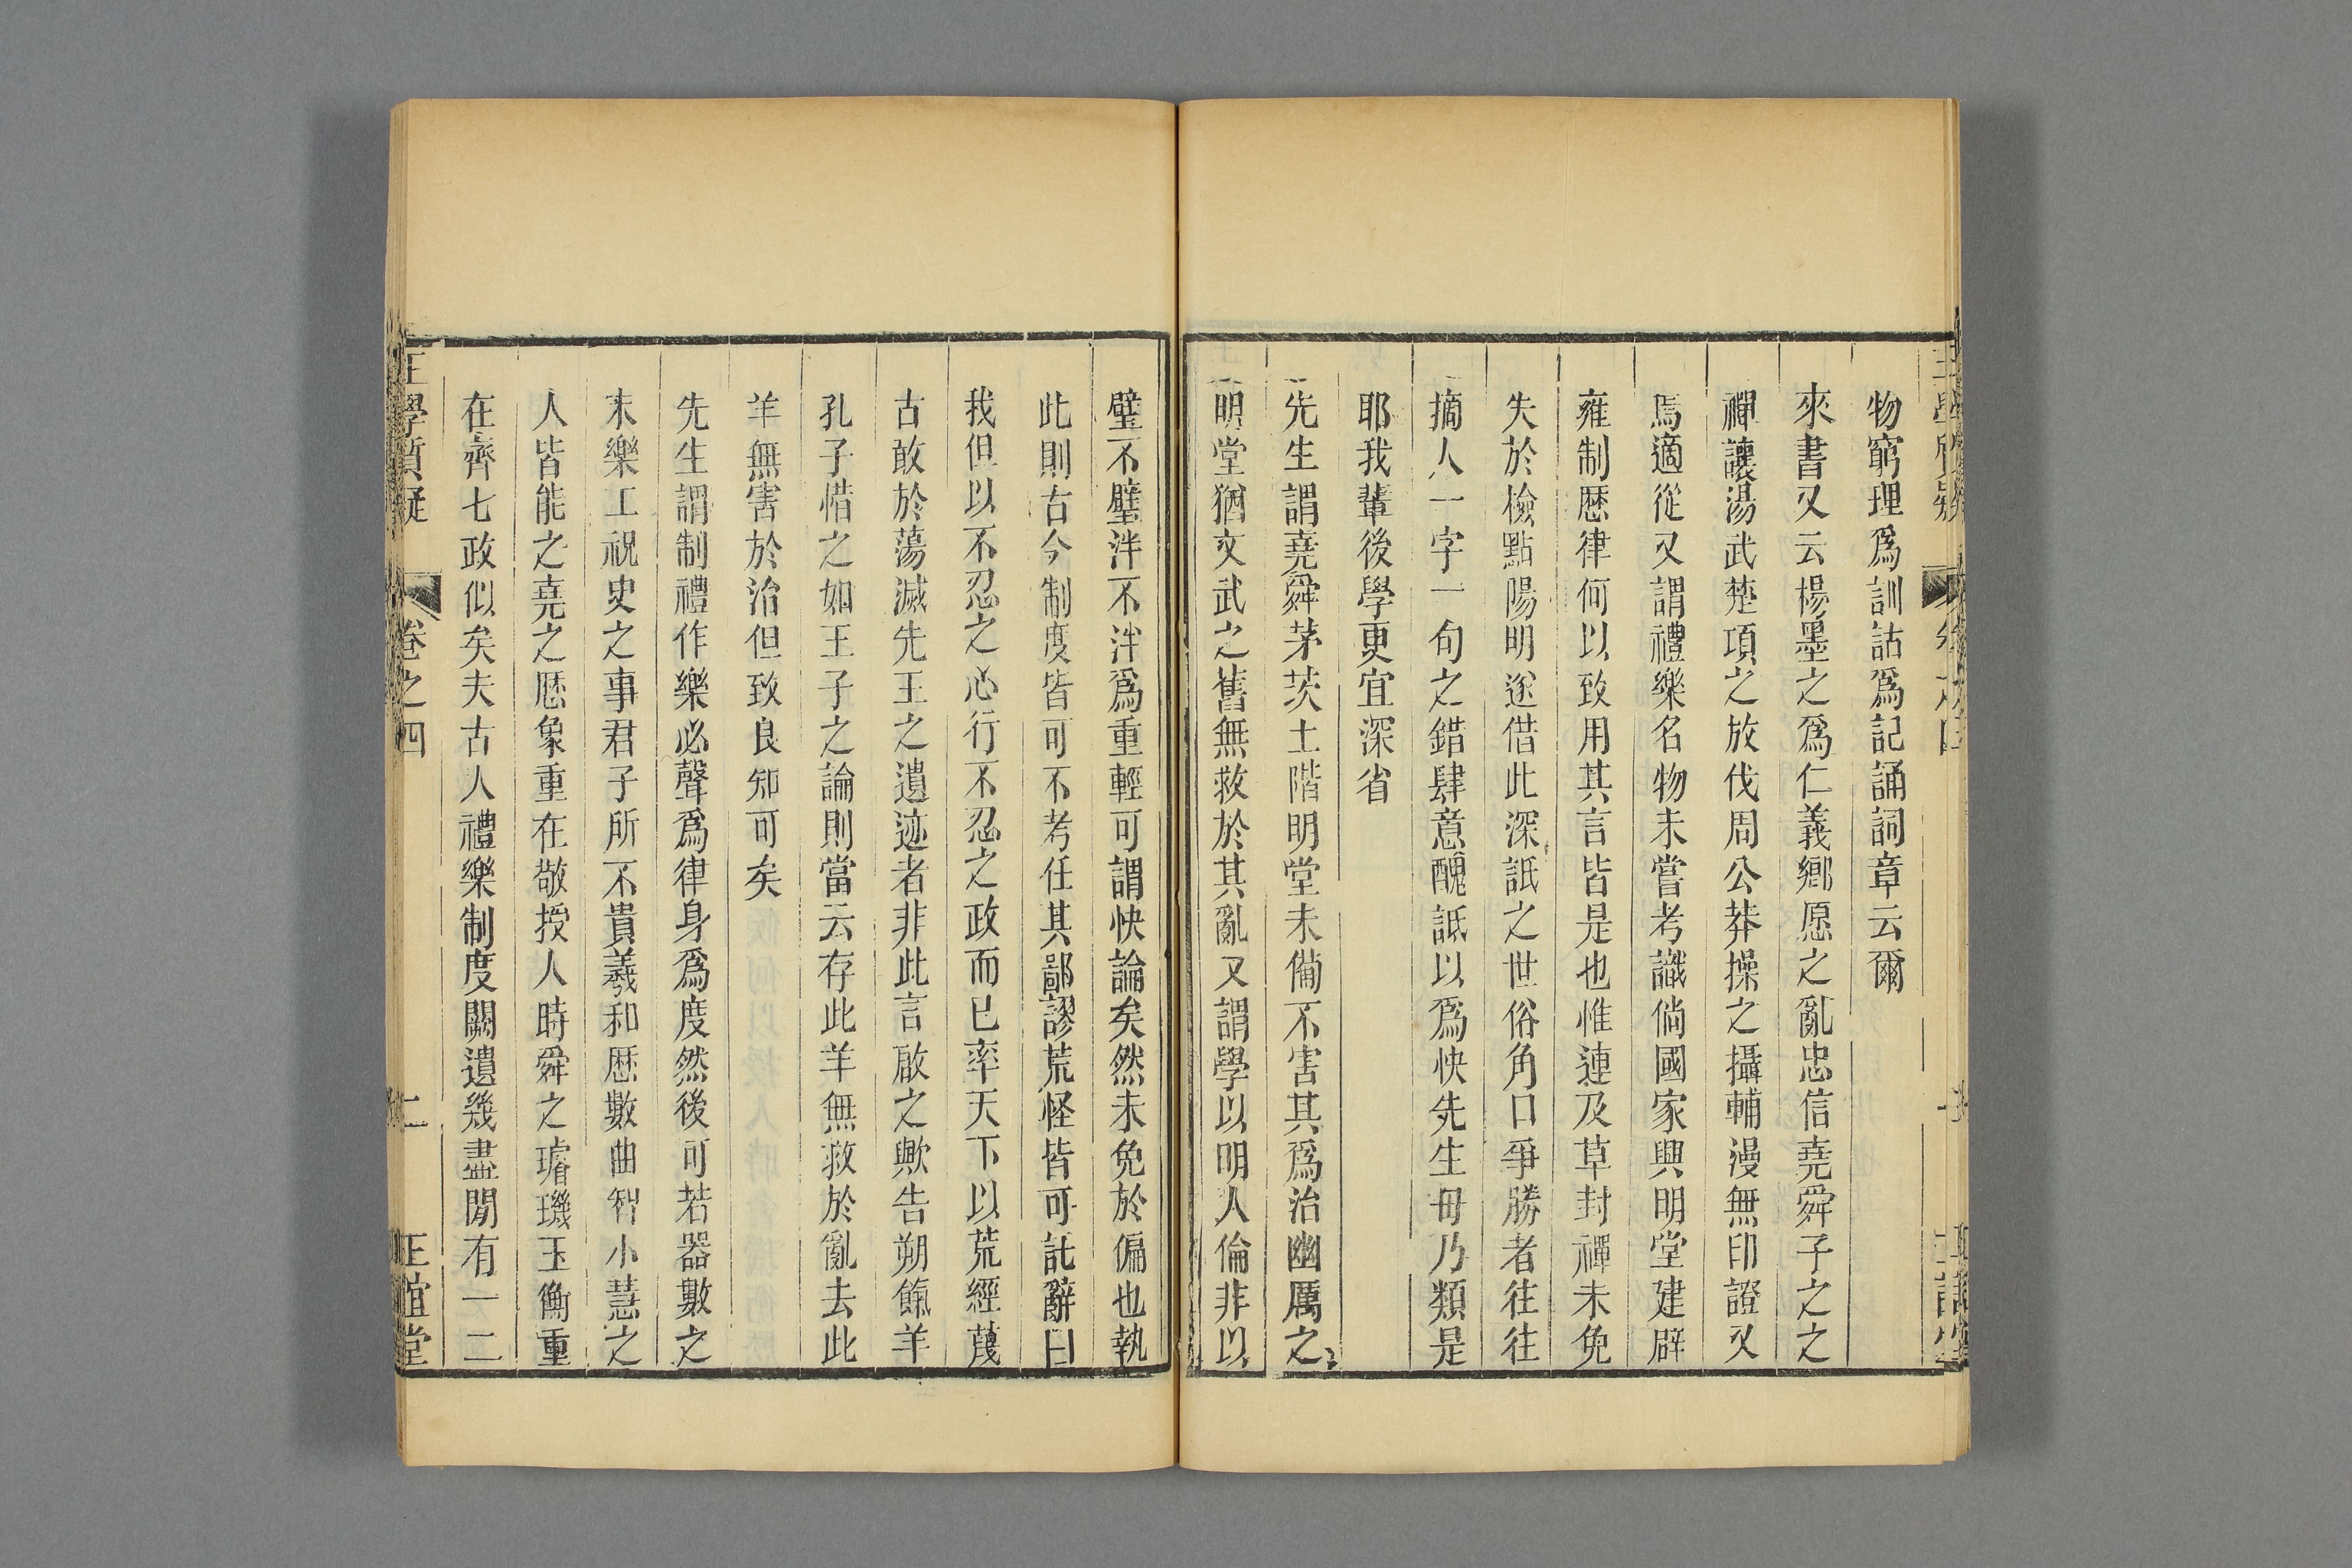 物窮理爲訓詁爲記誦詞章云爾
來書又云楊墨之爲仁義鄉愿之亂忠信堯舜子之之
禪讓湯武楚項之放伐周公莽操之攝輔漫無印證又
焉適從又謂禮樂名物未嘗考識倘國家興明堂建辟
雍制歷律何以致用其言皆是也惟連及草封禪未免
失於檢點陽明遂借此深詆之世俗角口爭勝者往往
摘人一字一句之錯肆意醜詆以爲快先生毋乃類是
耶我輩後學更宜深省
先生謂堯舜茅茨土階明堂未備不害其爲治幽厲之
明堂猶文武之舊無救於其亂又謂學以明人倫非以
璧不璧泮不泮爲重輕可謂快論矣然未免於偏也執
此則古今制度皆可不考任其鄙謬荒怪皆可託辭曰
我但以不忍之心行不忍之政而已率天下以荒經蔑
古敢於蕩滅先王之遺迹者非此言啟之歟告朔餼羊
孔子惜之如王子之論則當云存此羊無救於亂去此
羊無害於治但致良知可矣
先生謂制禮作樂必聲爲律身爲度然後可若器數之
末樂工祝史之事君子所不貴羲和歷數曲智小慧之
人皆能之堯之歷象重在敬授人時舜之璿璣玉衡重
在齊七政似矣夫古人禮樂制度闕遺幾盡閒有一二
王學質疑 卷之四 二 正誼堂